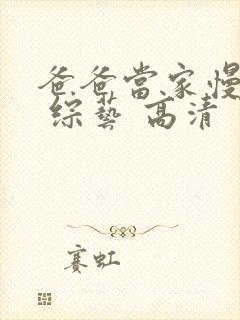 爸爸當家慢
綜藝 高清
賽虹